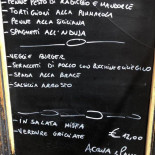 - PENNE PESTO DI RADICCHIO E MANDORLE
- TORTIGLIONI ALLA
- PENNE ALLA SICILIANA
- SPAGHETTI ALL'NDUJA
- VEGGIE BURGER
- STRACCETTI DI POLLO CON ZUCCHINE
- SPADA ALLA BRACE
- SALSICCIA ARROSTO
- INSALATA MISTA
- VERDURE GRIGLIATE
€ 12,00
ACQUA e